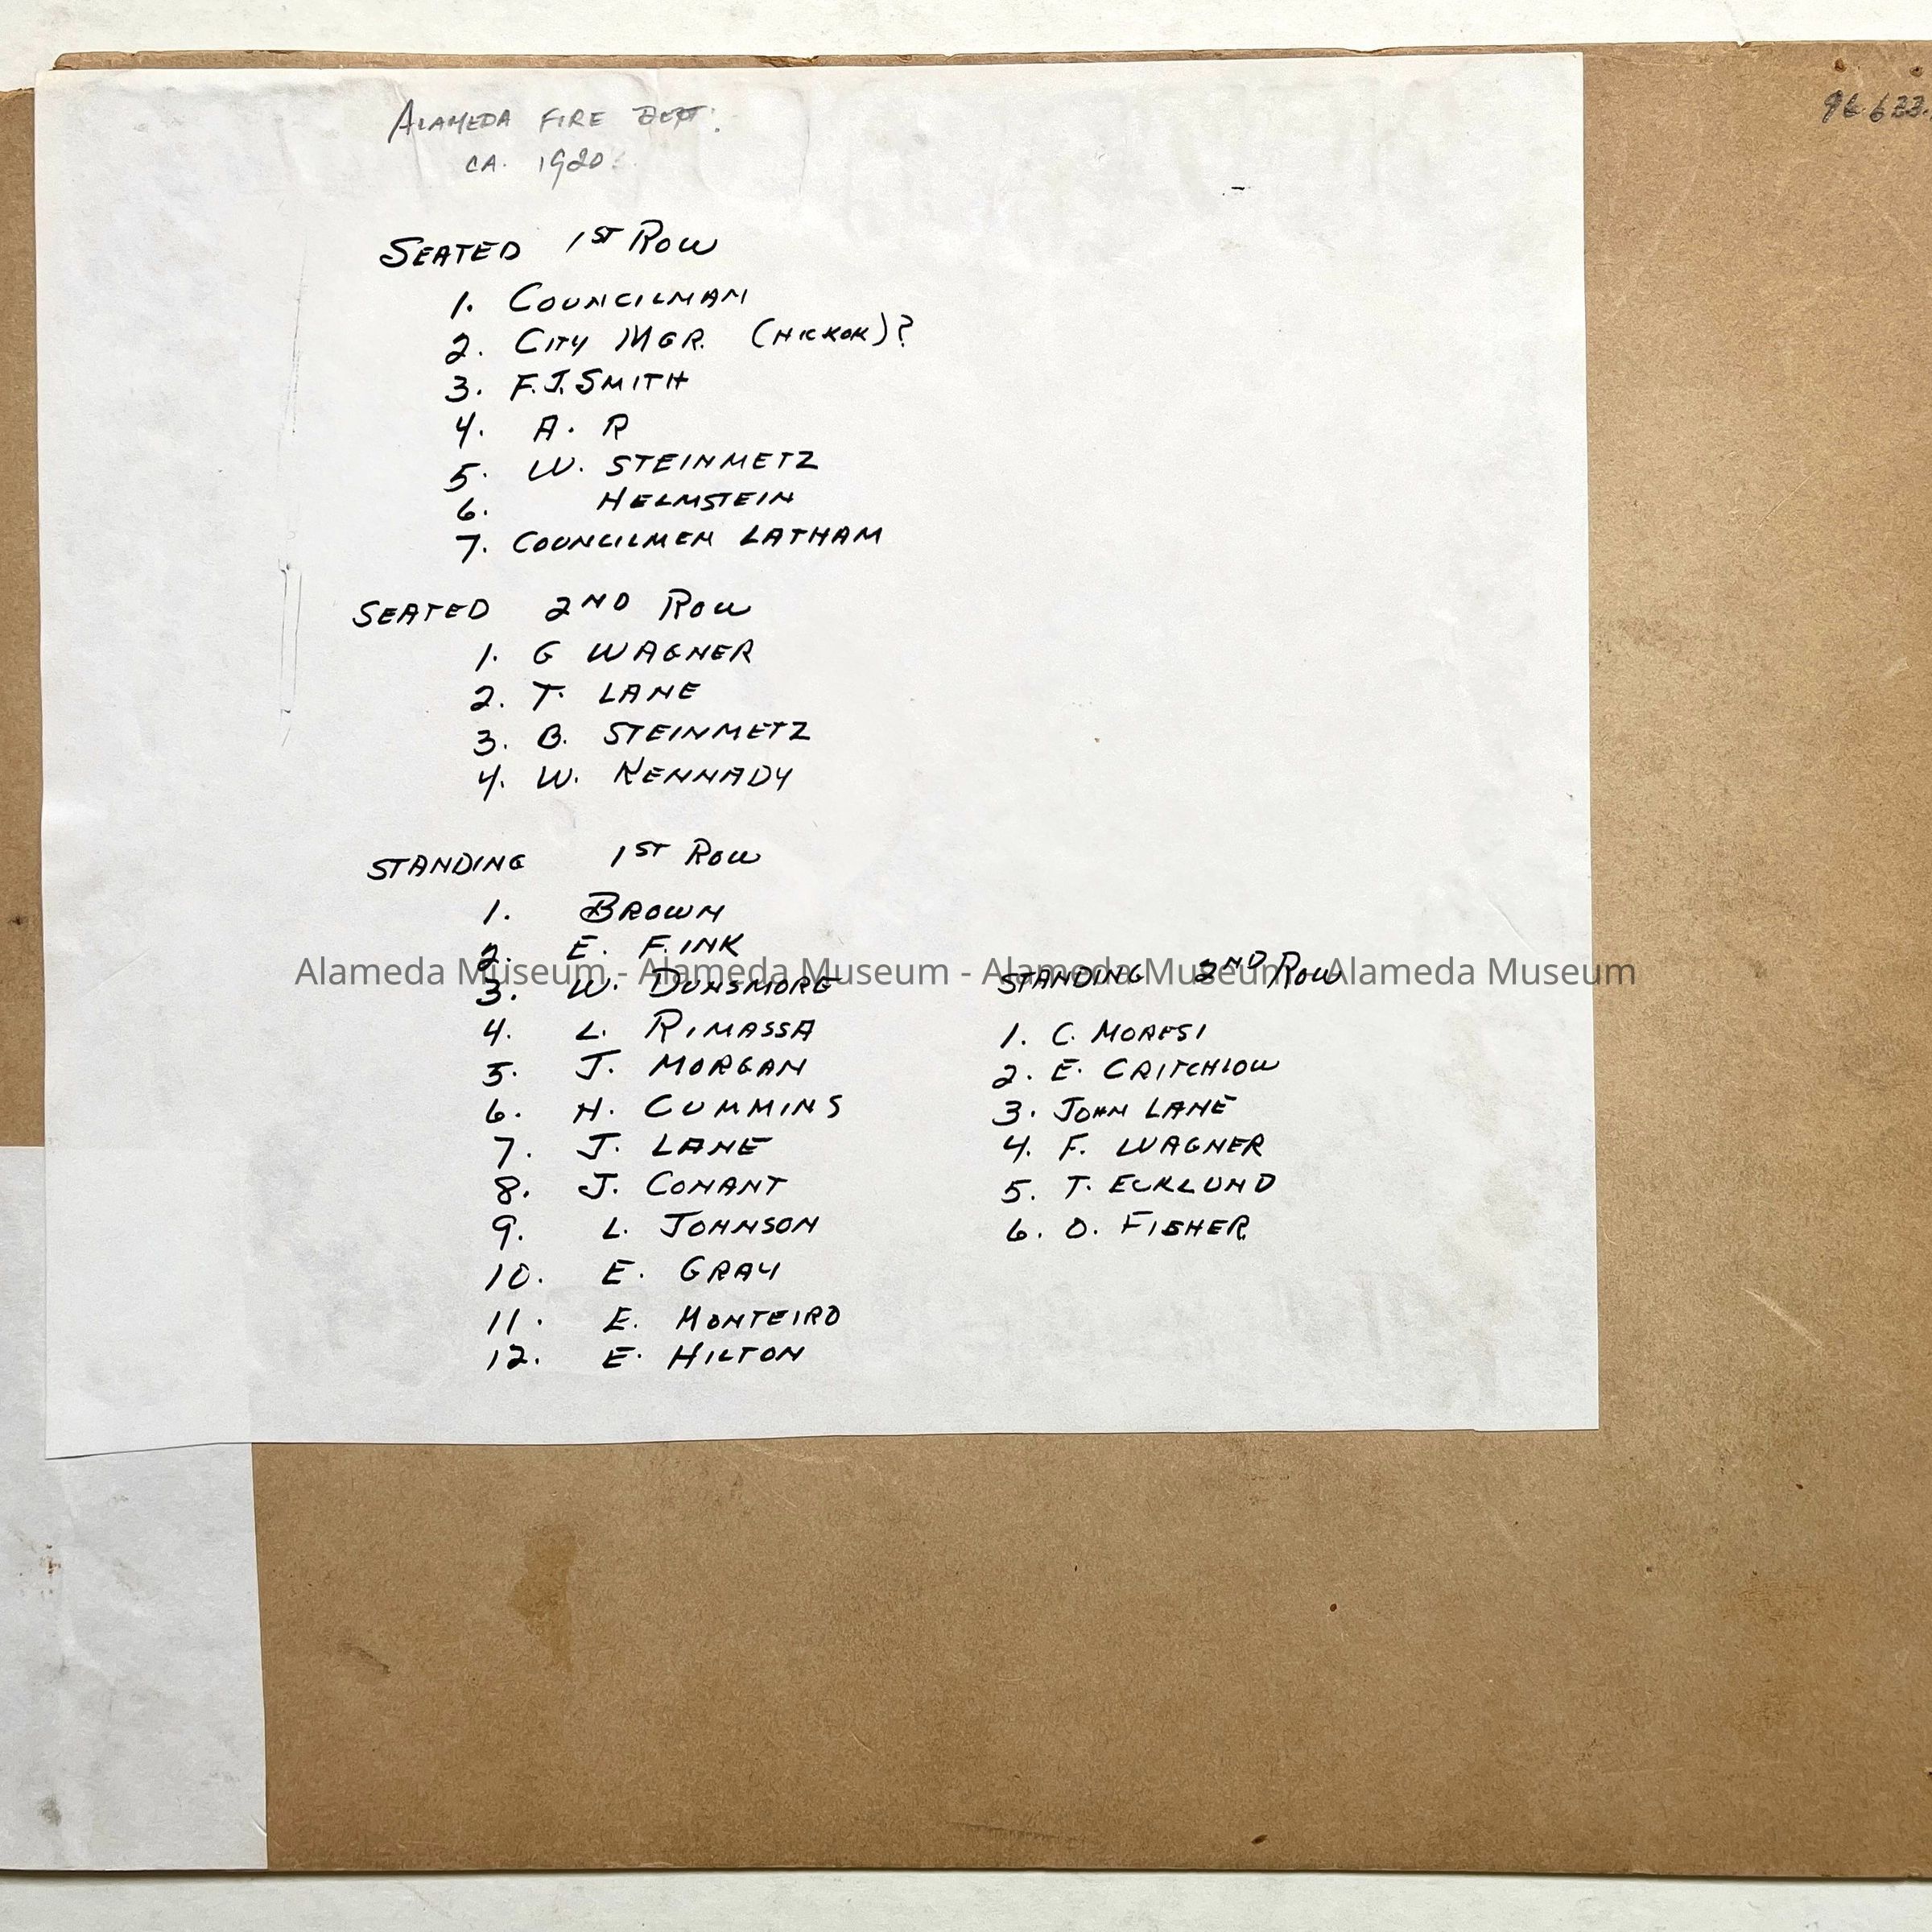 96.633.
ALAMEDA FIRE DEPT.
CA. 1920
SEATED 1ST ROW
1. COUNCILMAN
2. CITY MGR. (HICKOK)?
3. F.J. SMITH
4. A. R
5. W. STEINMETZ
6. HELMSTEIN
7. COUNCILMEN LATHAM
SEATED 2ND ROW
1. G WAGNER
2. T. LANE
3. B. STEINMETZ
4. W. KENNADY
STANDING 1ST ROW
1. BROWN
2. E. FINK
3. W. DUNSMORE
4. L. RIMASSA
5. J. MORGAN
6. H. CUMMINS
7. J. LANE
8. J. CONANT
9. L. JOHNSON
10. E. GRAY
11. E. MONTEIRO
12. E. HILTON
Alameda Museum - Alameda Museum - Alameda Museum - Alameda Museum
STANDING 2ND ROW
1. C. MORESI
2. E. CRITCHLOW
3. JOHN LANE
4. F. WAGNER
5. T. ECKLUND
6. O. FISHER